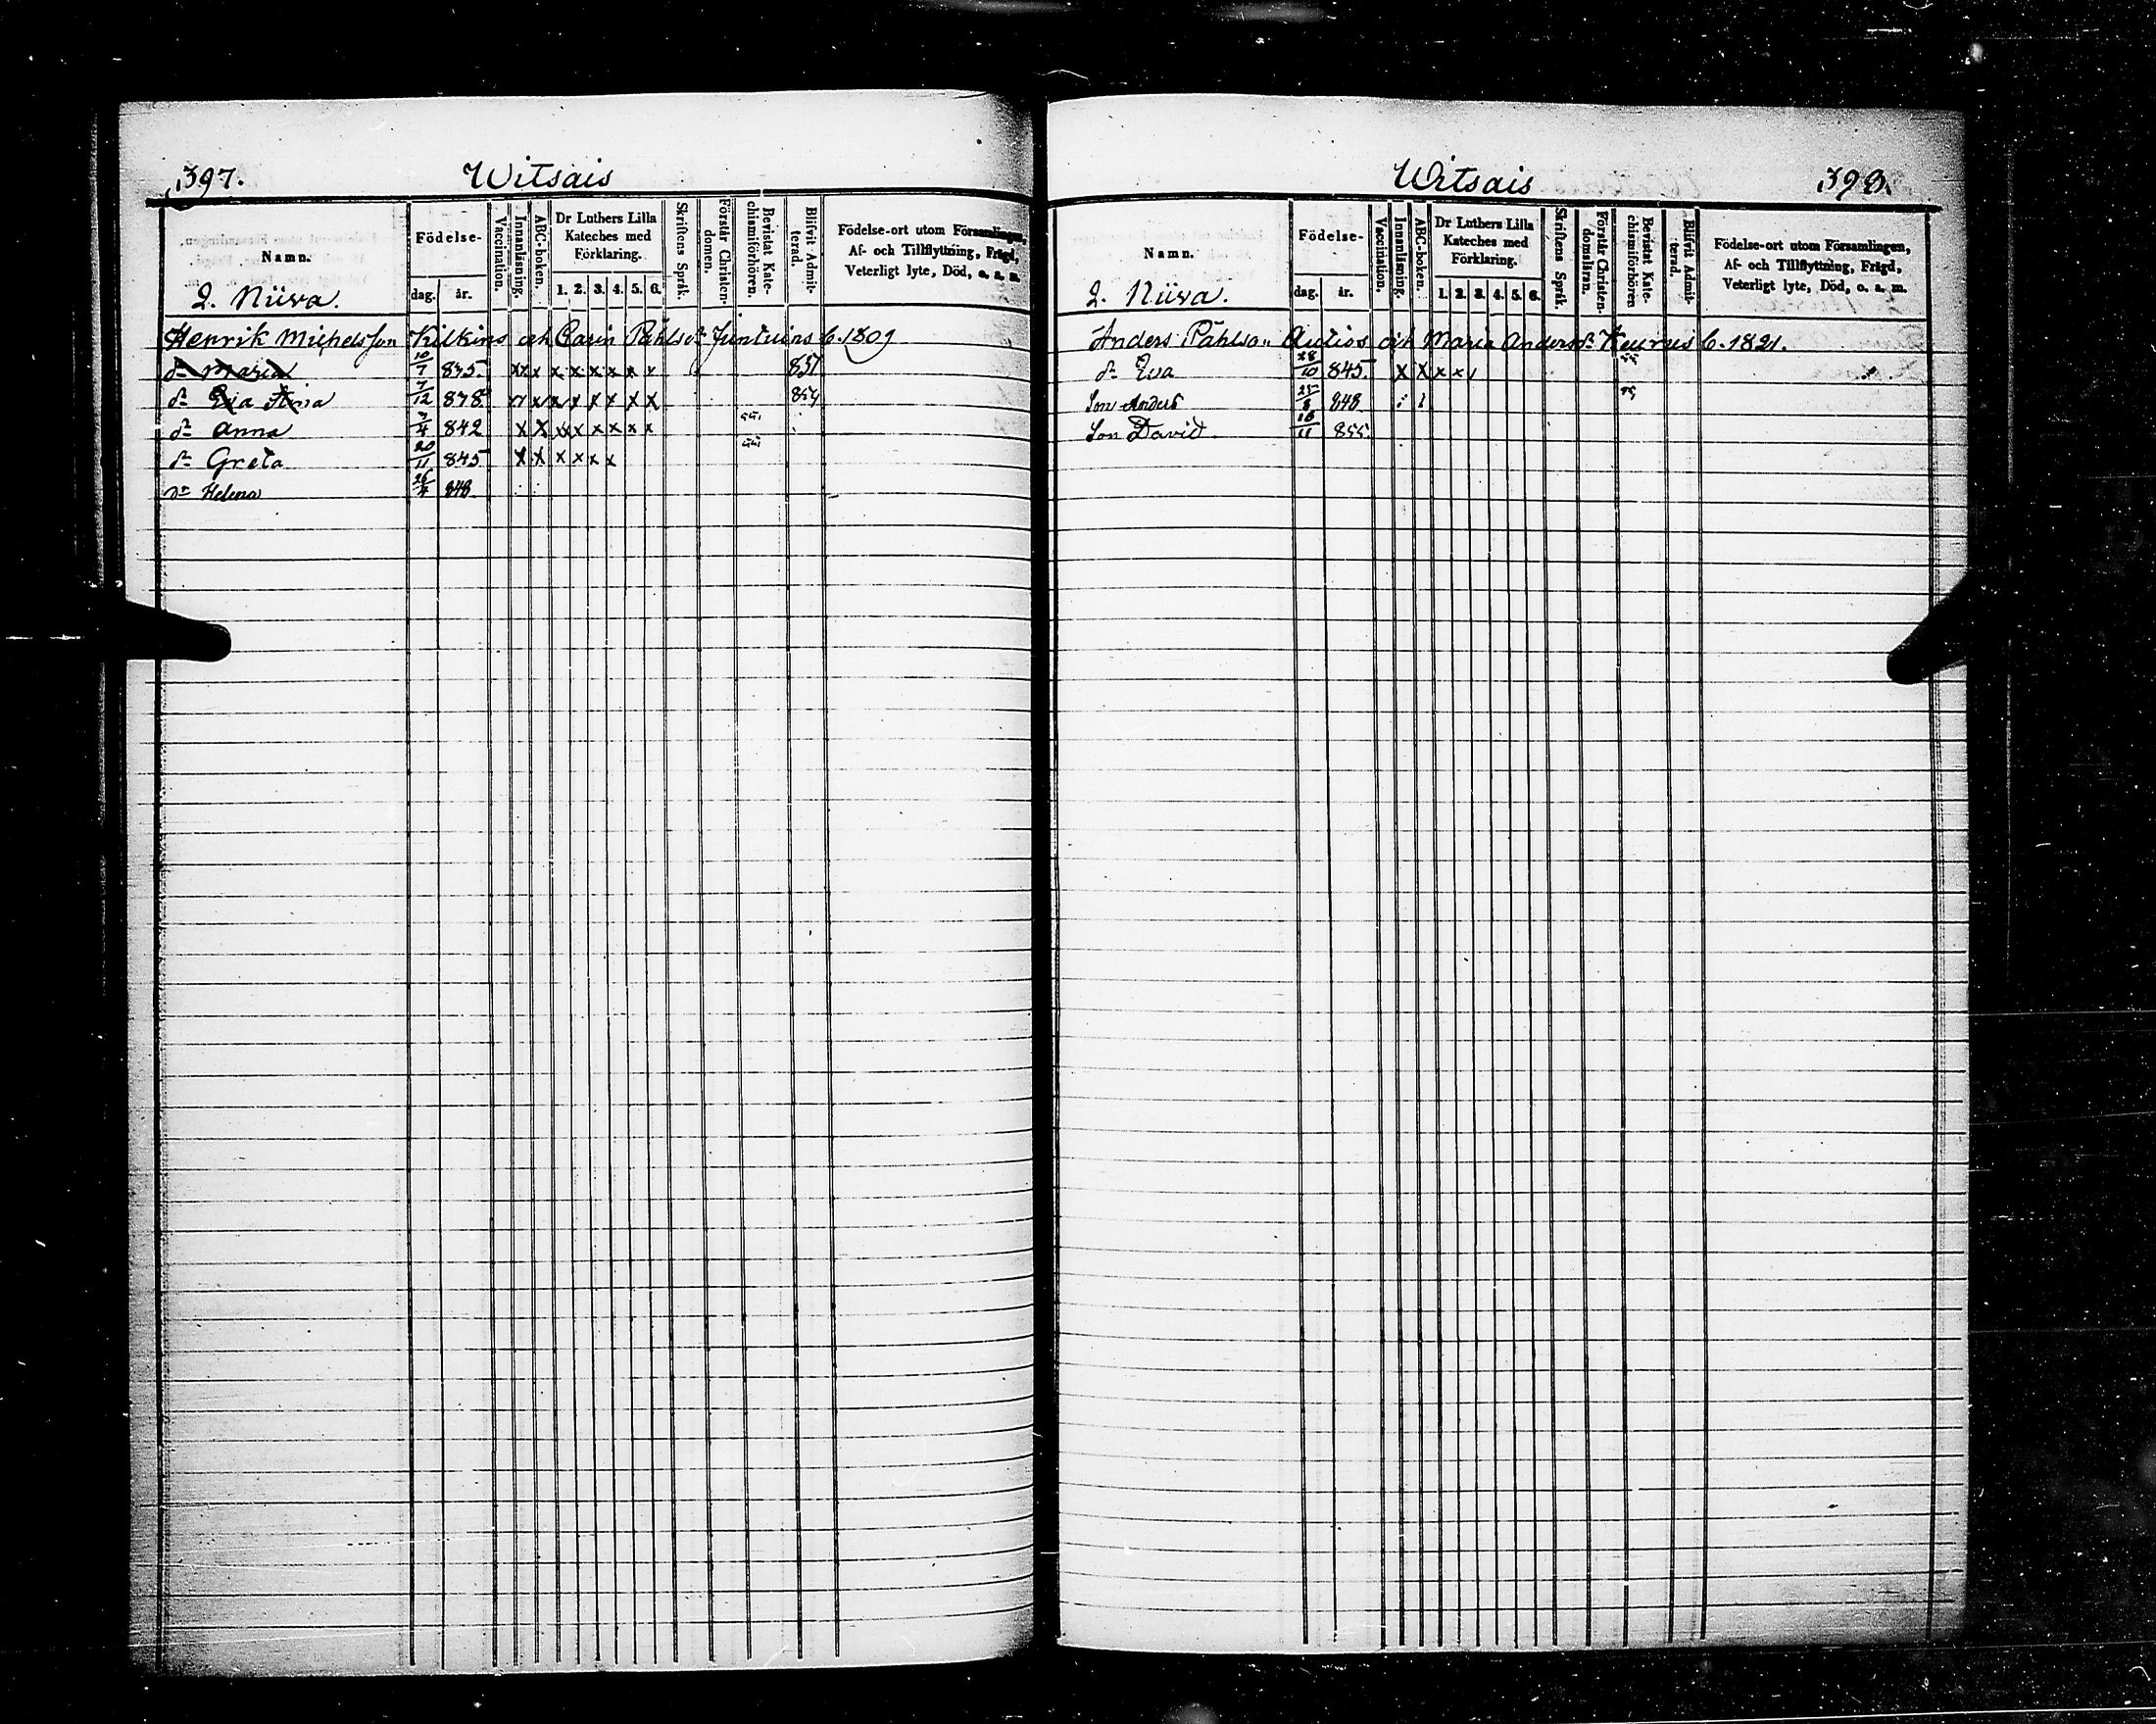 397. Witsais
Namn.
Födelse-
dag. år.
Vaccination.
Innanläsning.
ABC-boken.
Dr Luthers Lilla
Kateches med
Förklaring.
1. 2. 3. 4. 5. 6.
Skriftens Språk.
Förstår Christen-
domen.
Bevistat Kate-
chismiförhören.
Blifvit Admit-
terad.
Födelse-ort utom Församlingen,
Af- och Tillflyttning, Frägd,
Veterligt lyte, Död, o. a. m.
2. Niiva.
Henrik Michelsson Kilkins och Carin Påhlsdr Juntuins b. 1809
dr Maria 10/1 835. xx x x x x x x x 851
dr Eva Stina 7/12 838 x x x x x x x x 854
dr Anna 7/4 842 x x xx x x x x x
dr Greta 20/11 845 x x x x x x
dr Helena 26/4 848
Witsais 398.
Namn.
Födelse-
dag. år.
Vaccination.
Innanläsning.
ABC-boken.
Dr Luthers Lilla
Kateches med
Förklaring.
1. 2. 3. 4. 5. 6.
Skriftens Språk.
Förstår Christen-
domsläran.
Bevistat Kate-
chismiförhören
Blifvit Admit-
terad.
Födelse-ort utom Församlingen,
Af- och Tillflyttning, Frägd,
Veterligt lyte, Död, o. a. m.
2. Niiva.
Anders Påhlson Autios och Maria Andersdr Keurus b. 1821.
dr Eva 28/10 845. x x x x
Son Anders 25/8 848
Son David 18/11 855.